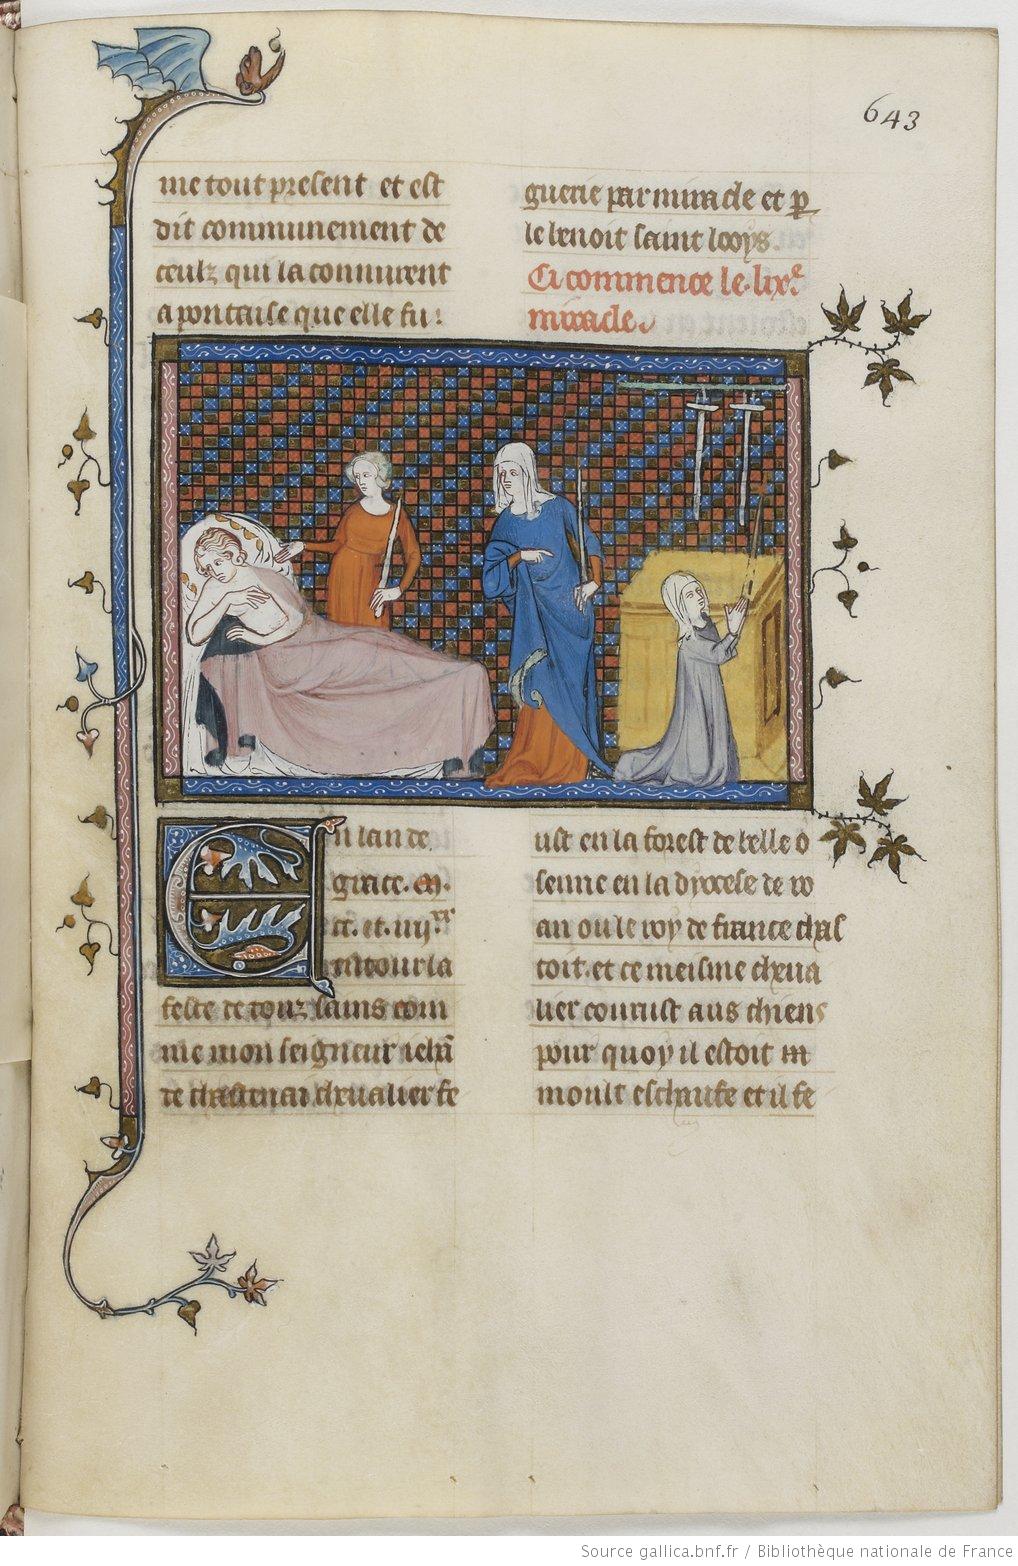 643
me tout present et est
dit communement de
ceulz qui la connurent
a pontaise que elle fu
guerie par miracle et p
le benoit saint looys.
Ci commence le lixe
miracle.
En lan de
grace. m.
cc. et. iiijxx
entour la
feste de touz sains com
me mon seigneur jehan
de chastenai chevalier fe
ust en la forest de belle o
senne en la dyocese de ro
an ou le roy de france chas
toit. et ce meisme cheva
lier courust aus chiens
pour quoy il estoit
moult eschaufe et il fe
Source gallica.bnf.fr / Bibliothèque nationale de France